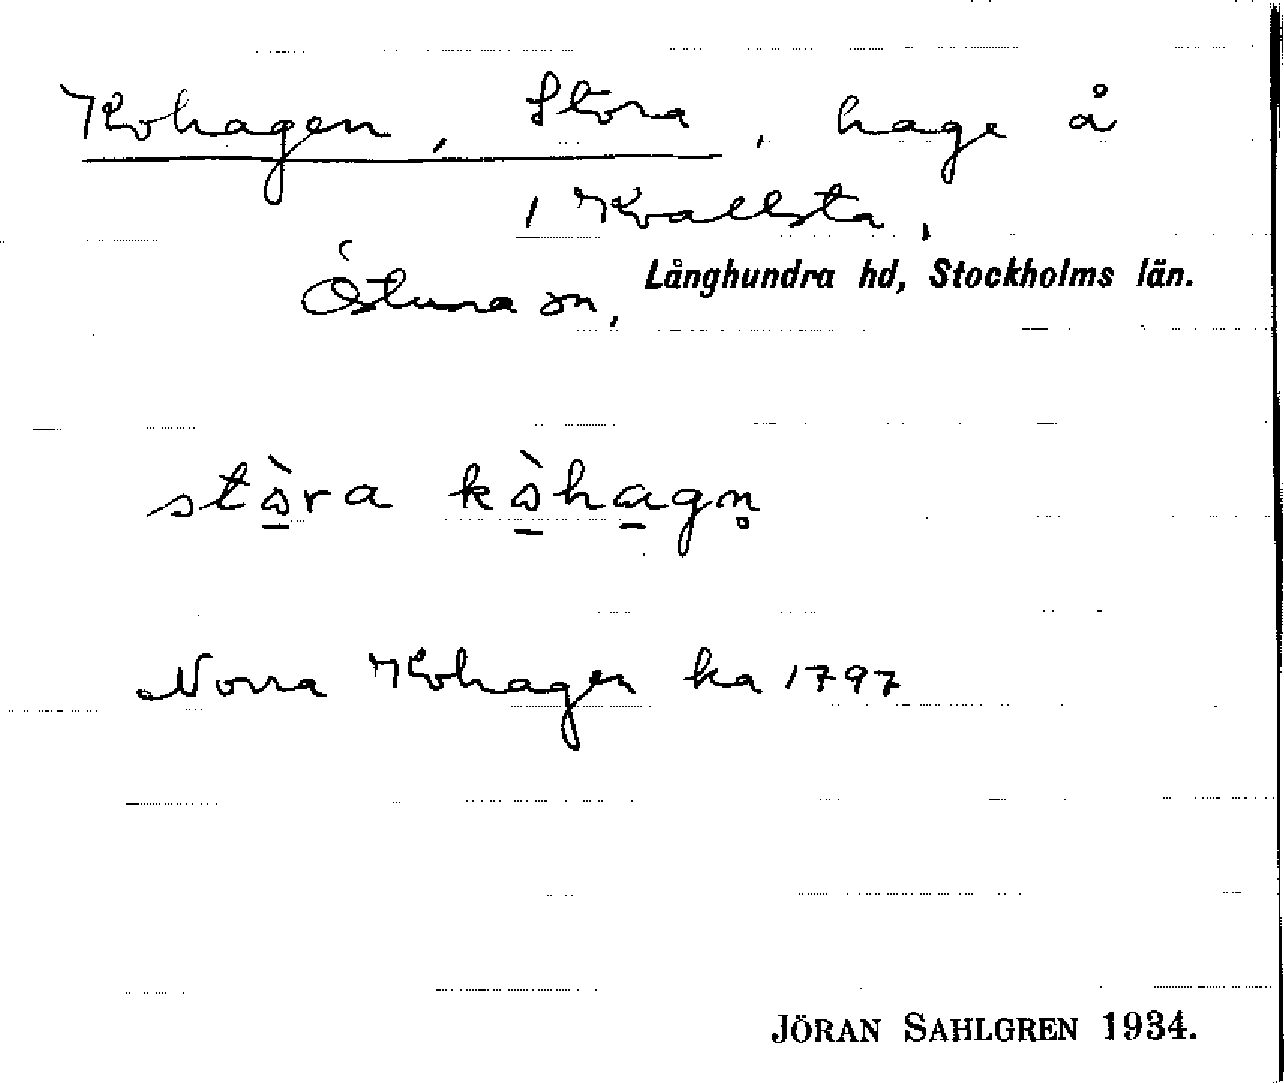 Kohagen, Stora, hage å
1 Kvallsta,
Östuna sn, Långhundra hd, Stockholms län.
stò̱ra kò̱ha̱gn̥
Norra Kohagen ka 1797
JÖRAN SAHLGREN 1934.